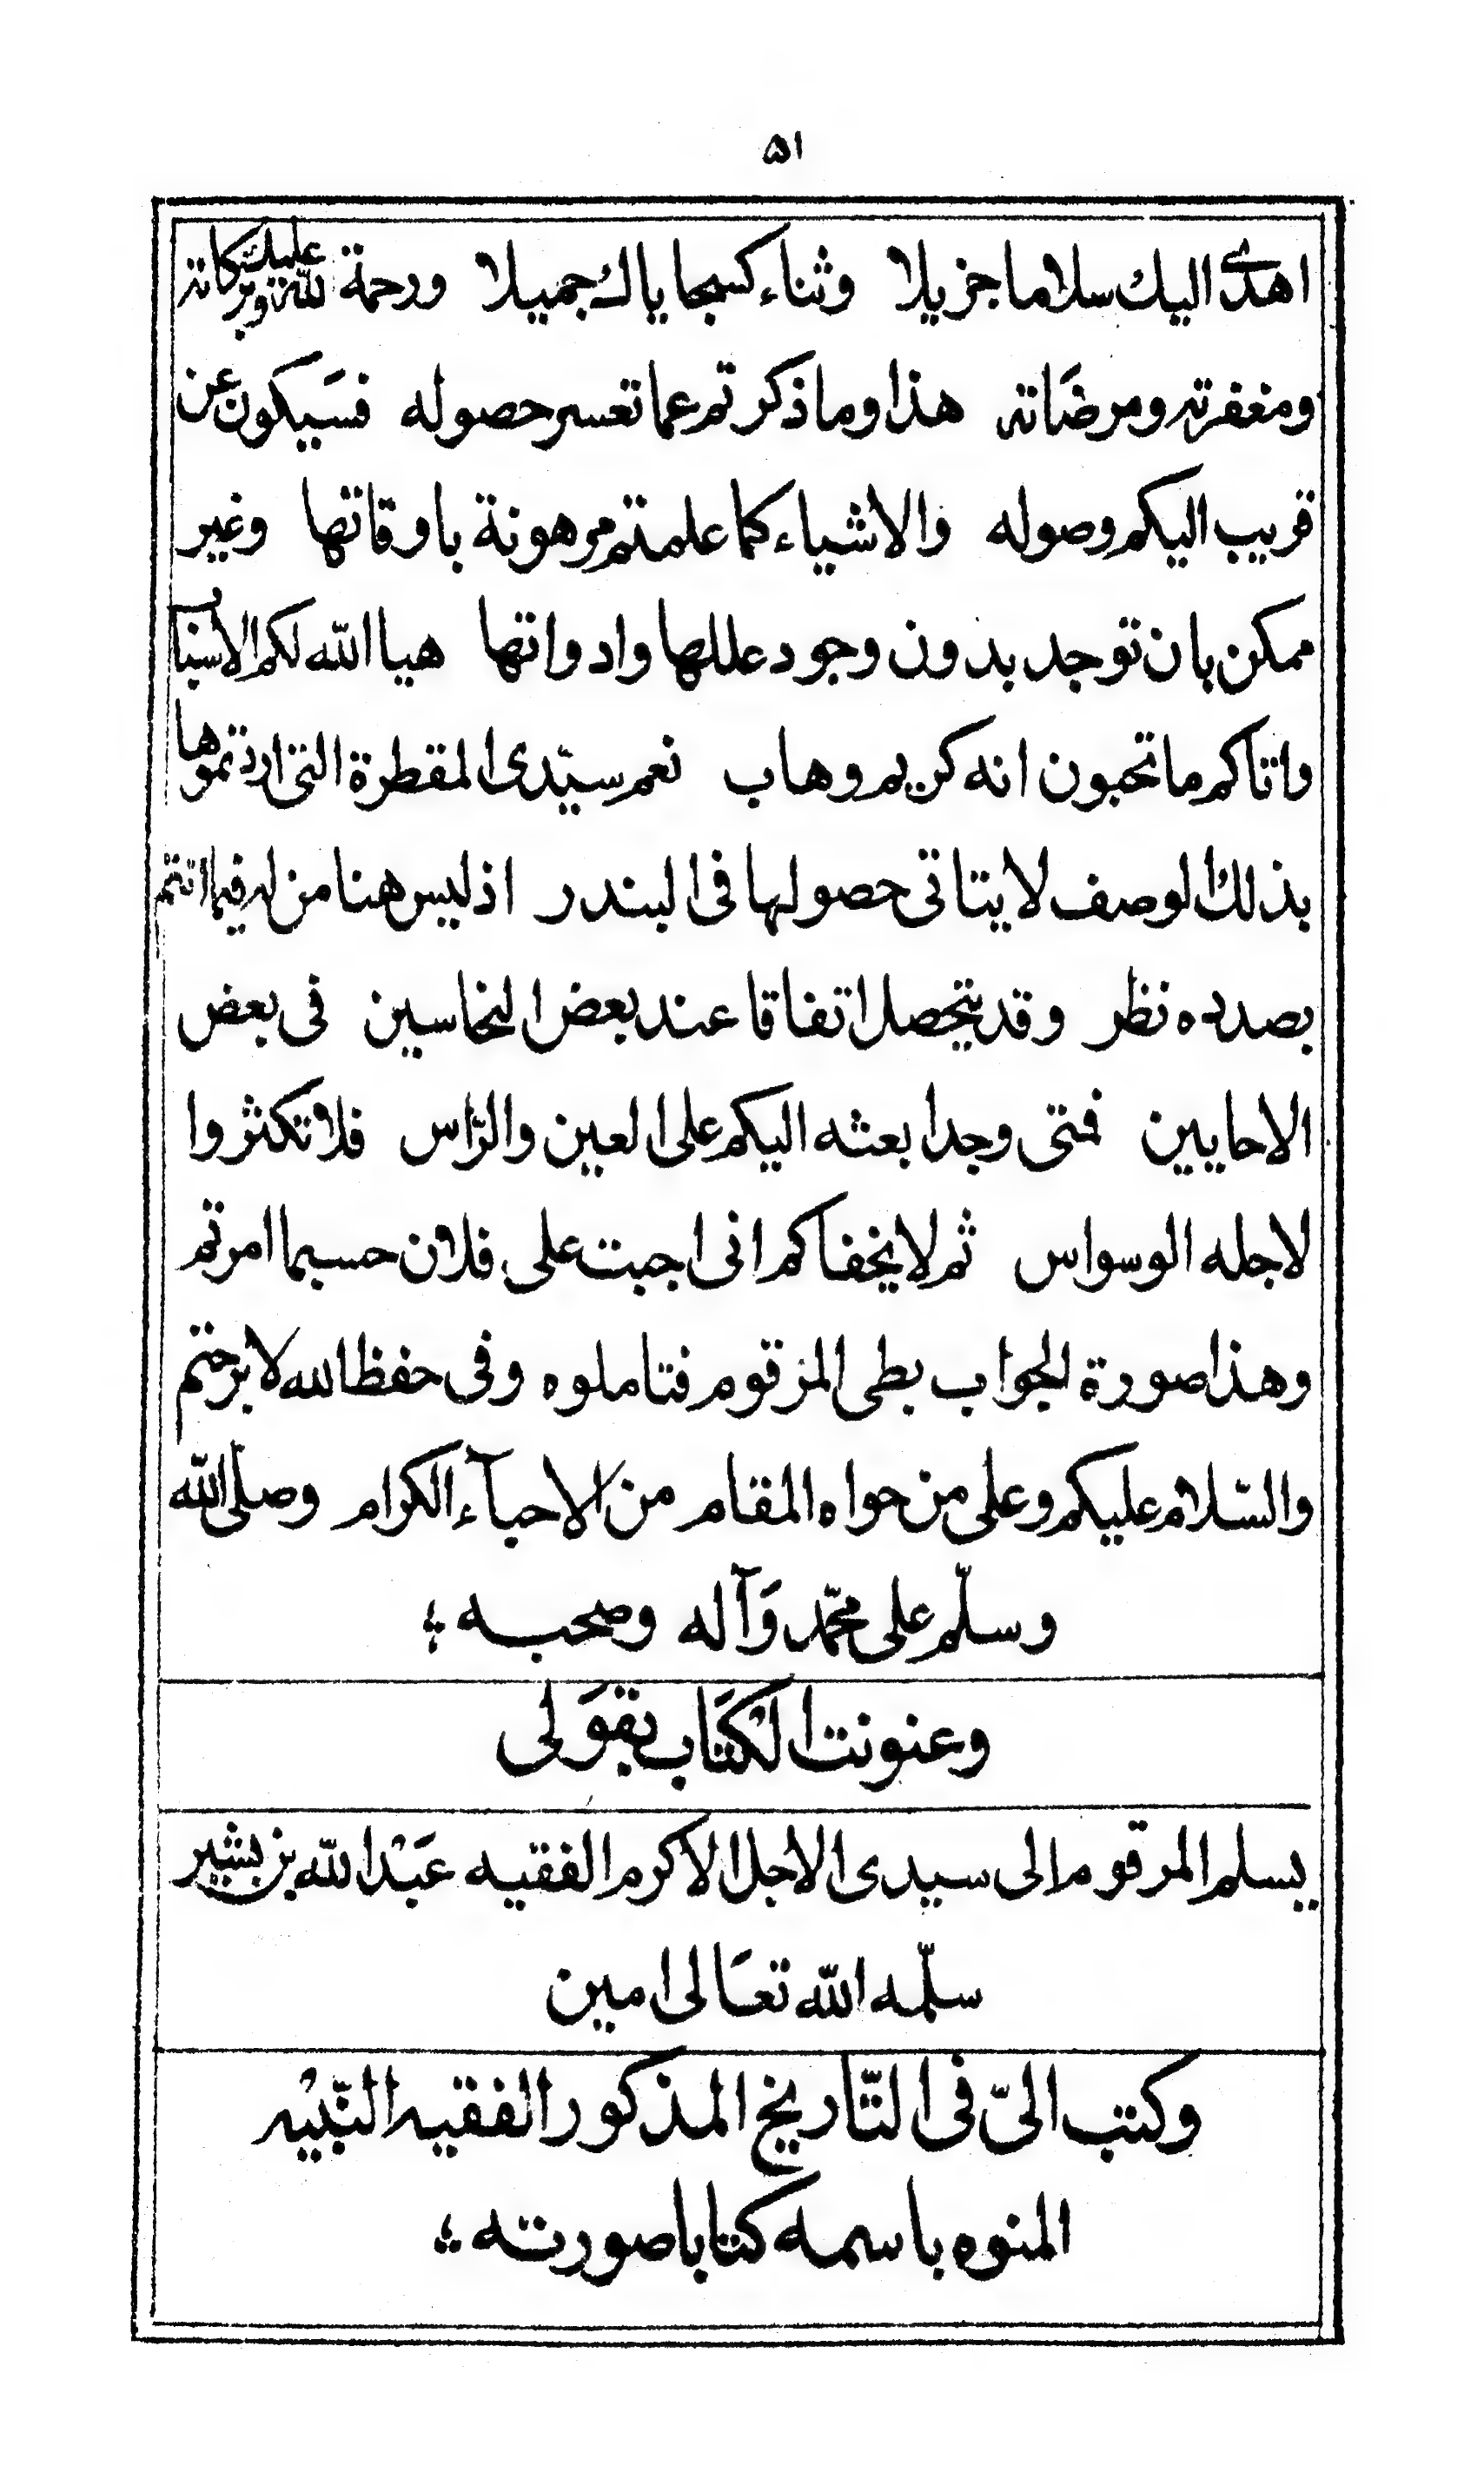 ٥١
اهدى اليك سلاما جزيلا وثناء كسجاياك جميلا ورحمة الله عليك وبركاته
ومغفرته ومرضَاته هذا وما ذكرتم عما تعسر حصوله فسَيكون عن
قريب اليكم وصوله والاشياء كما علمتم مرهونة باوقاتها وغير
ممكن بان توجد بدون وجود عللها وادواتها هيا الله لكم الاسباب
واتاكم ما تحبون انه كريم وهاب نعم سيّدى المقطرة التى اردتموها
بذلك الوصف لا يتاتى حصولها فى البندر اذ ليس هنا من له فيما انتم
بصدده نظر وقد يتحصل اتفاقا عند بعض النخاسين فى بعض
الاحايين فمتى وجد ابعثه اليكم على العين والرّاس فلا تكثروا
لاجله الوسواس ثم لا يخفاكم انى اجبت على فلان حسبما امرتم
وهذا صورة الجواب بطى المزقوم فتاملوه وفى حفظ الله لا برحتم
والسّلام عليكم وعلى من حواه المقام من الاحبآء الكرام وصلى الله
وسلّم على محمّد وَآله وصحبه ؛
وعنونت الكتَاب بقوَلى
يسلم المرقوم الى سيدى الاجل الاكرم الفقيه عَبْد الله بن بشير
سلّمه الله تعَالى امين
وكتب الىّ فى التّاريخ المذكور الفقيه النّبيْه
المنوه باسمه كتابا صورته ؛